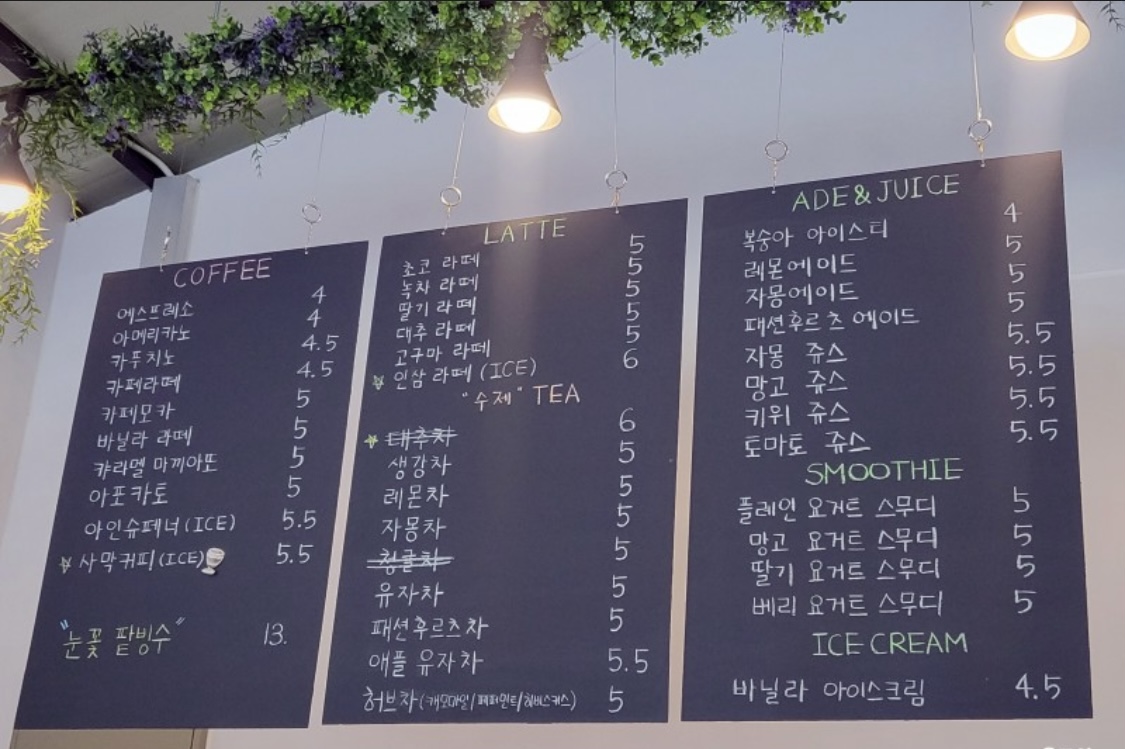 COFFEE
에스프레소 4
아메리카노 4
카푸치노 4.5
카페라떼 4.5
카페모카 5
바닐라 라떼 5
캬라멜 마끼아또 5
아포카토 5
아인슈페너(ICE) 5.5
사막커피(ICE) 5.5
"눈꽃 팥빙수" 13.
LATTE
초코 라떼 5
녹차 라떼 5
딸기 라떼 5
대추 라떼 5
고구마 라떼 5
인삼 라떼(ICE) 6
"수제" TEA
대추차 6
생강차 5
레몬차 5
자몽차 5
청귤차 5
유자차 5
패션후르츠차 5
애플 유자차 5.5
허브차(캐모마일/페퍼민트/히비스커스) 5
ADE&JUICE
복숭아 아이스티 4
레몬에이드 5
자몽에이드 5
패션후르츠에이드 5
자몽 쥬스 5.5
망고 쥬스 5.5
키위 쥬스 5.5
토마토 쥬스 5.5
SMOOTHIE
플레인 요거트 스무디 5
망고 요거트 스무디 5
딸기 요거트 스무디 5
베리 요거트 스무디 5
ICE CREAM
바닐라 아이스크림 4.5